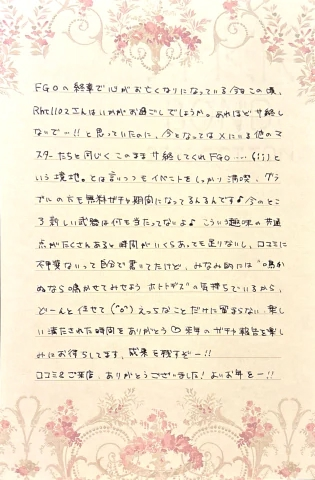 FGOの終章で心がお亡くなりになっている今日この頃、
Rhell02さんはいかがお過ごしでしょうか。あれほどサ終し
ないで…!!と思っていたのに、今となってはXにいる他のマ
スターたちと同じくこのままサ終してくれFGO…(;;)と
いう境地。とは言いつつもイベントをしっかり満喫、グラ
ブルの方も無料ガチャ期間になってるんるんです♪今のとこ
ろ新しい武器は何も当たってないよ♪こういう趣味の共通
点がたくさんあると時間がいくらあっても足りないし、口コミに
不甲斐ないって自分で書いてたけど、みなみ的には"鳴か
ぬなら鳴かせてみせよう ホトトギス"の気持ちでいるから、
どーんと任せて(°∀°)えっちなことだけに留まらない、楽し
い満たされた時間をありがとう♡来年のガチャ報告を楽し
みにお待ちしてます、成果を残すぞー!!
口コミ&ご来店、ありがとうございました!よいお年をー!!